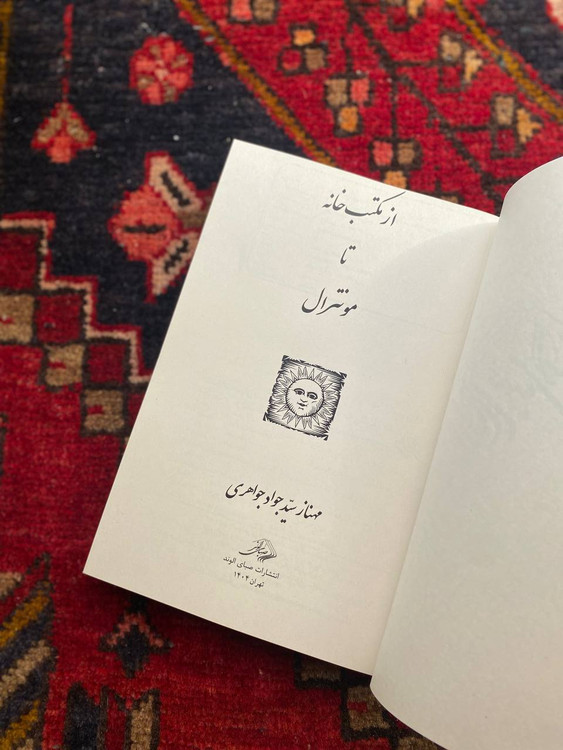 از مکتب خانه
تا
مونترال
مهناز سیّد جواد جواهری
انتشارات صبای الوند
تهران ۱۴۰۴